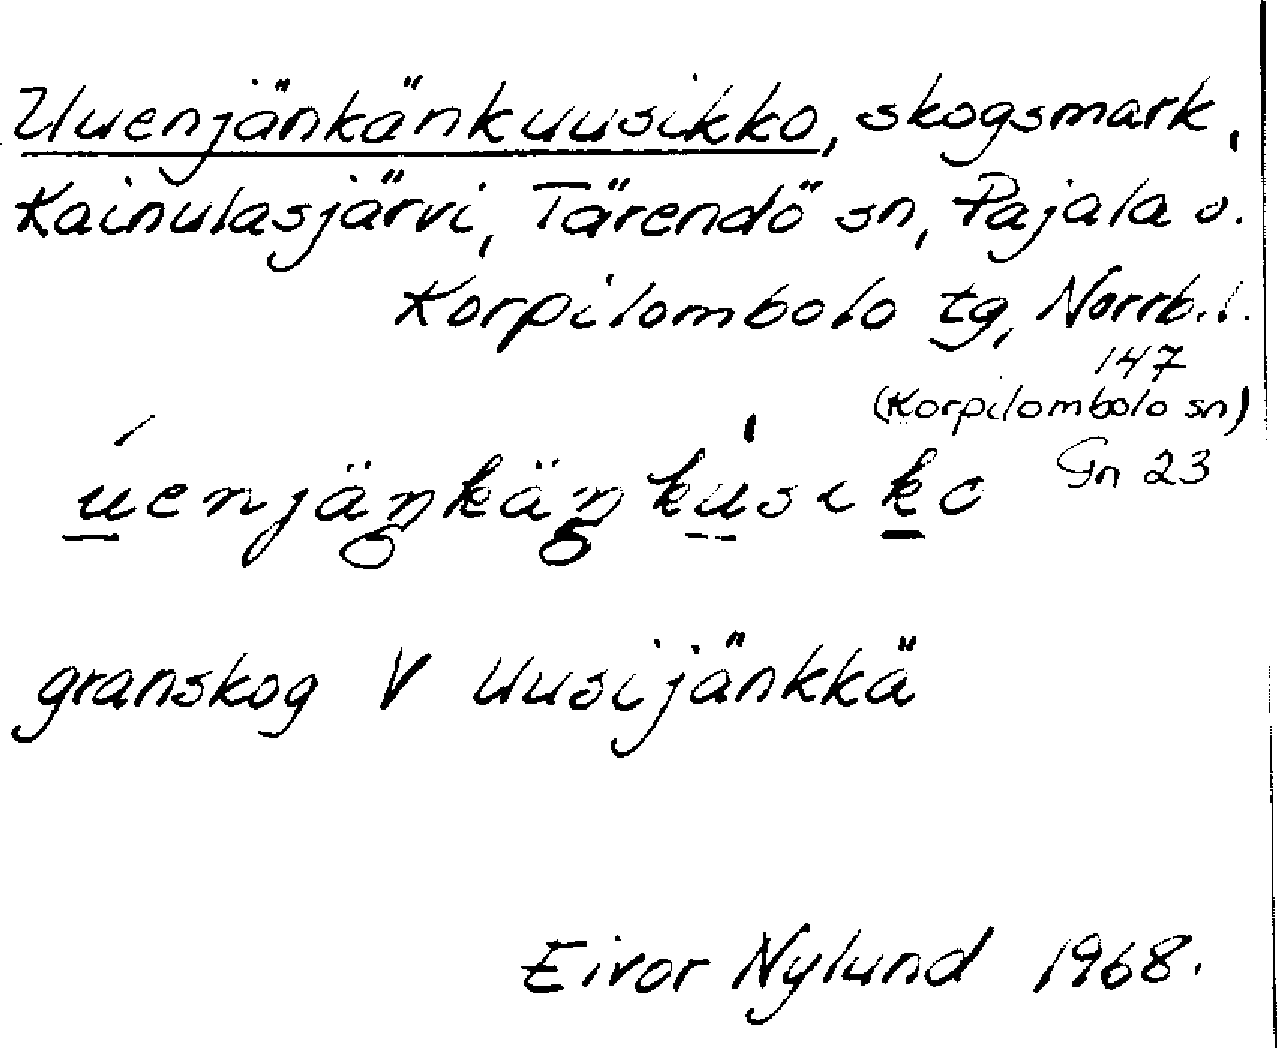 Uuenjänkänkuusikko, skogsmark,
Kainulasjärvi, Tärendö sn, Pajala o.
Korpilombolo tg, Norrb. l.
147
(Korpilombolo sn)
Gn 23
úenjäŋkäŋkúsiko
granskog V Uusijänkkä
Eivor Nylund 1968.